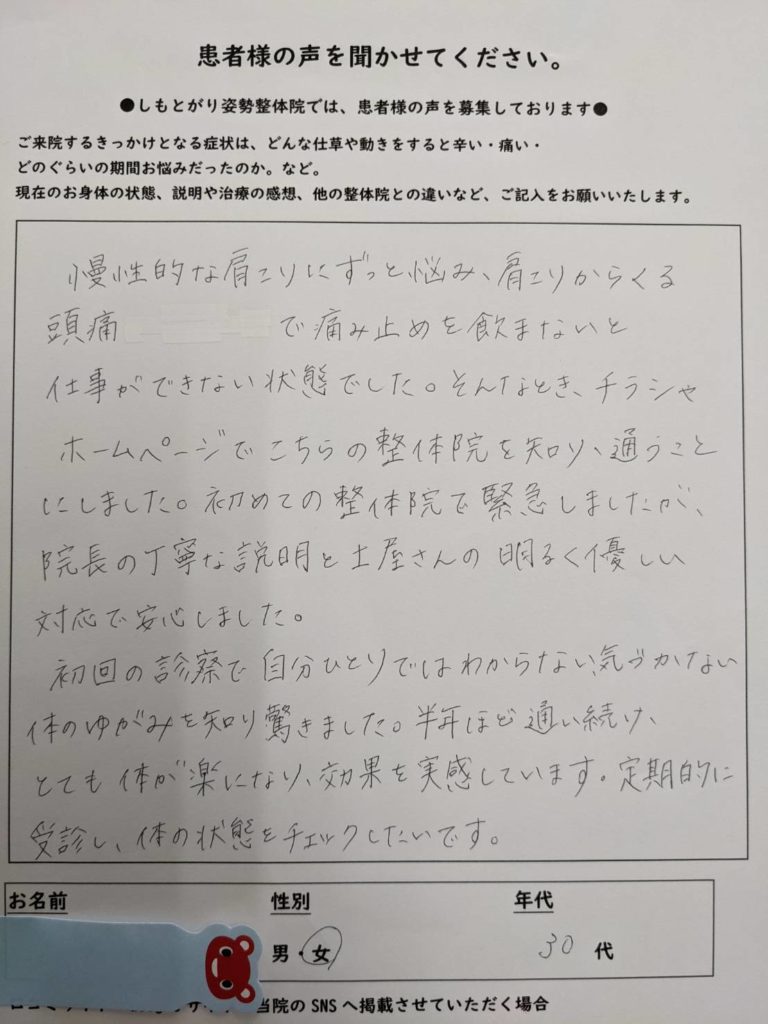 患者様の声を聞かせてください。
●しもとがり姿勢整体院では、患者様の声を募集しております●
ご来院するきっかけとなる症状は、どんな仕草や動きをすると辛い・痛い・
どのぐらいの期間お悩みだったのか。など。
現在のお身体の状態、説明や治療の感想、他の整体院との違いなど、ご記入をお願いいたします。
慢性的な肩こりにずっと悩み、肩こりからくる
頭痛 で痛み止めを飲まないと
仕事ができない状態でした。そんなとき、チラシや
ホームページでこちらの整体院を知り、通うこと
にしました。初めての整体院で緊急しましたが、
院長の丁寧な説明と土屋さんの明るく優しい
対応で安心しました。
初回の診察で自分ひとりではわからない、気づかない
体のゆがみを知り驚きました。半年ほど通い続け、
とても体が楽になり、効果を実感しています。定期的に
受診し、体の状態をチェックしたいです。
お名前 性別 年代
男・女 30代
当院の SNS へ掲載させていただく場合